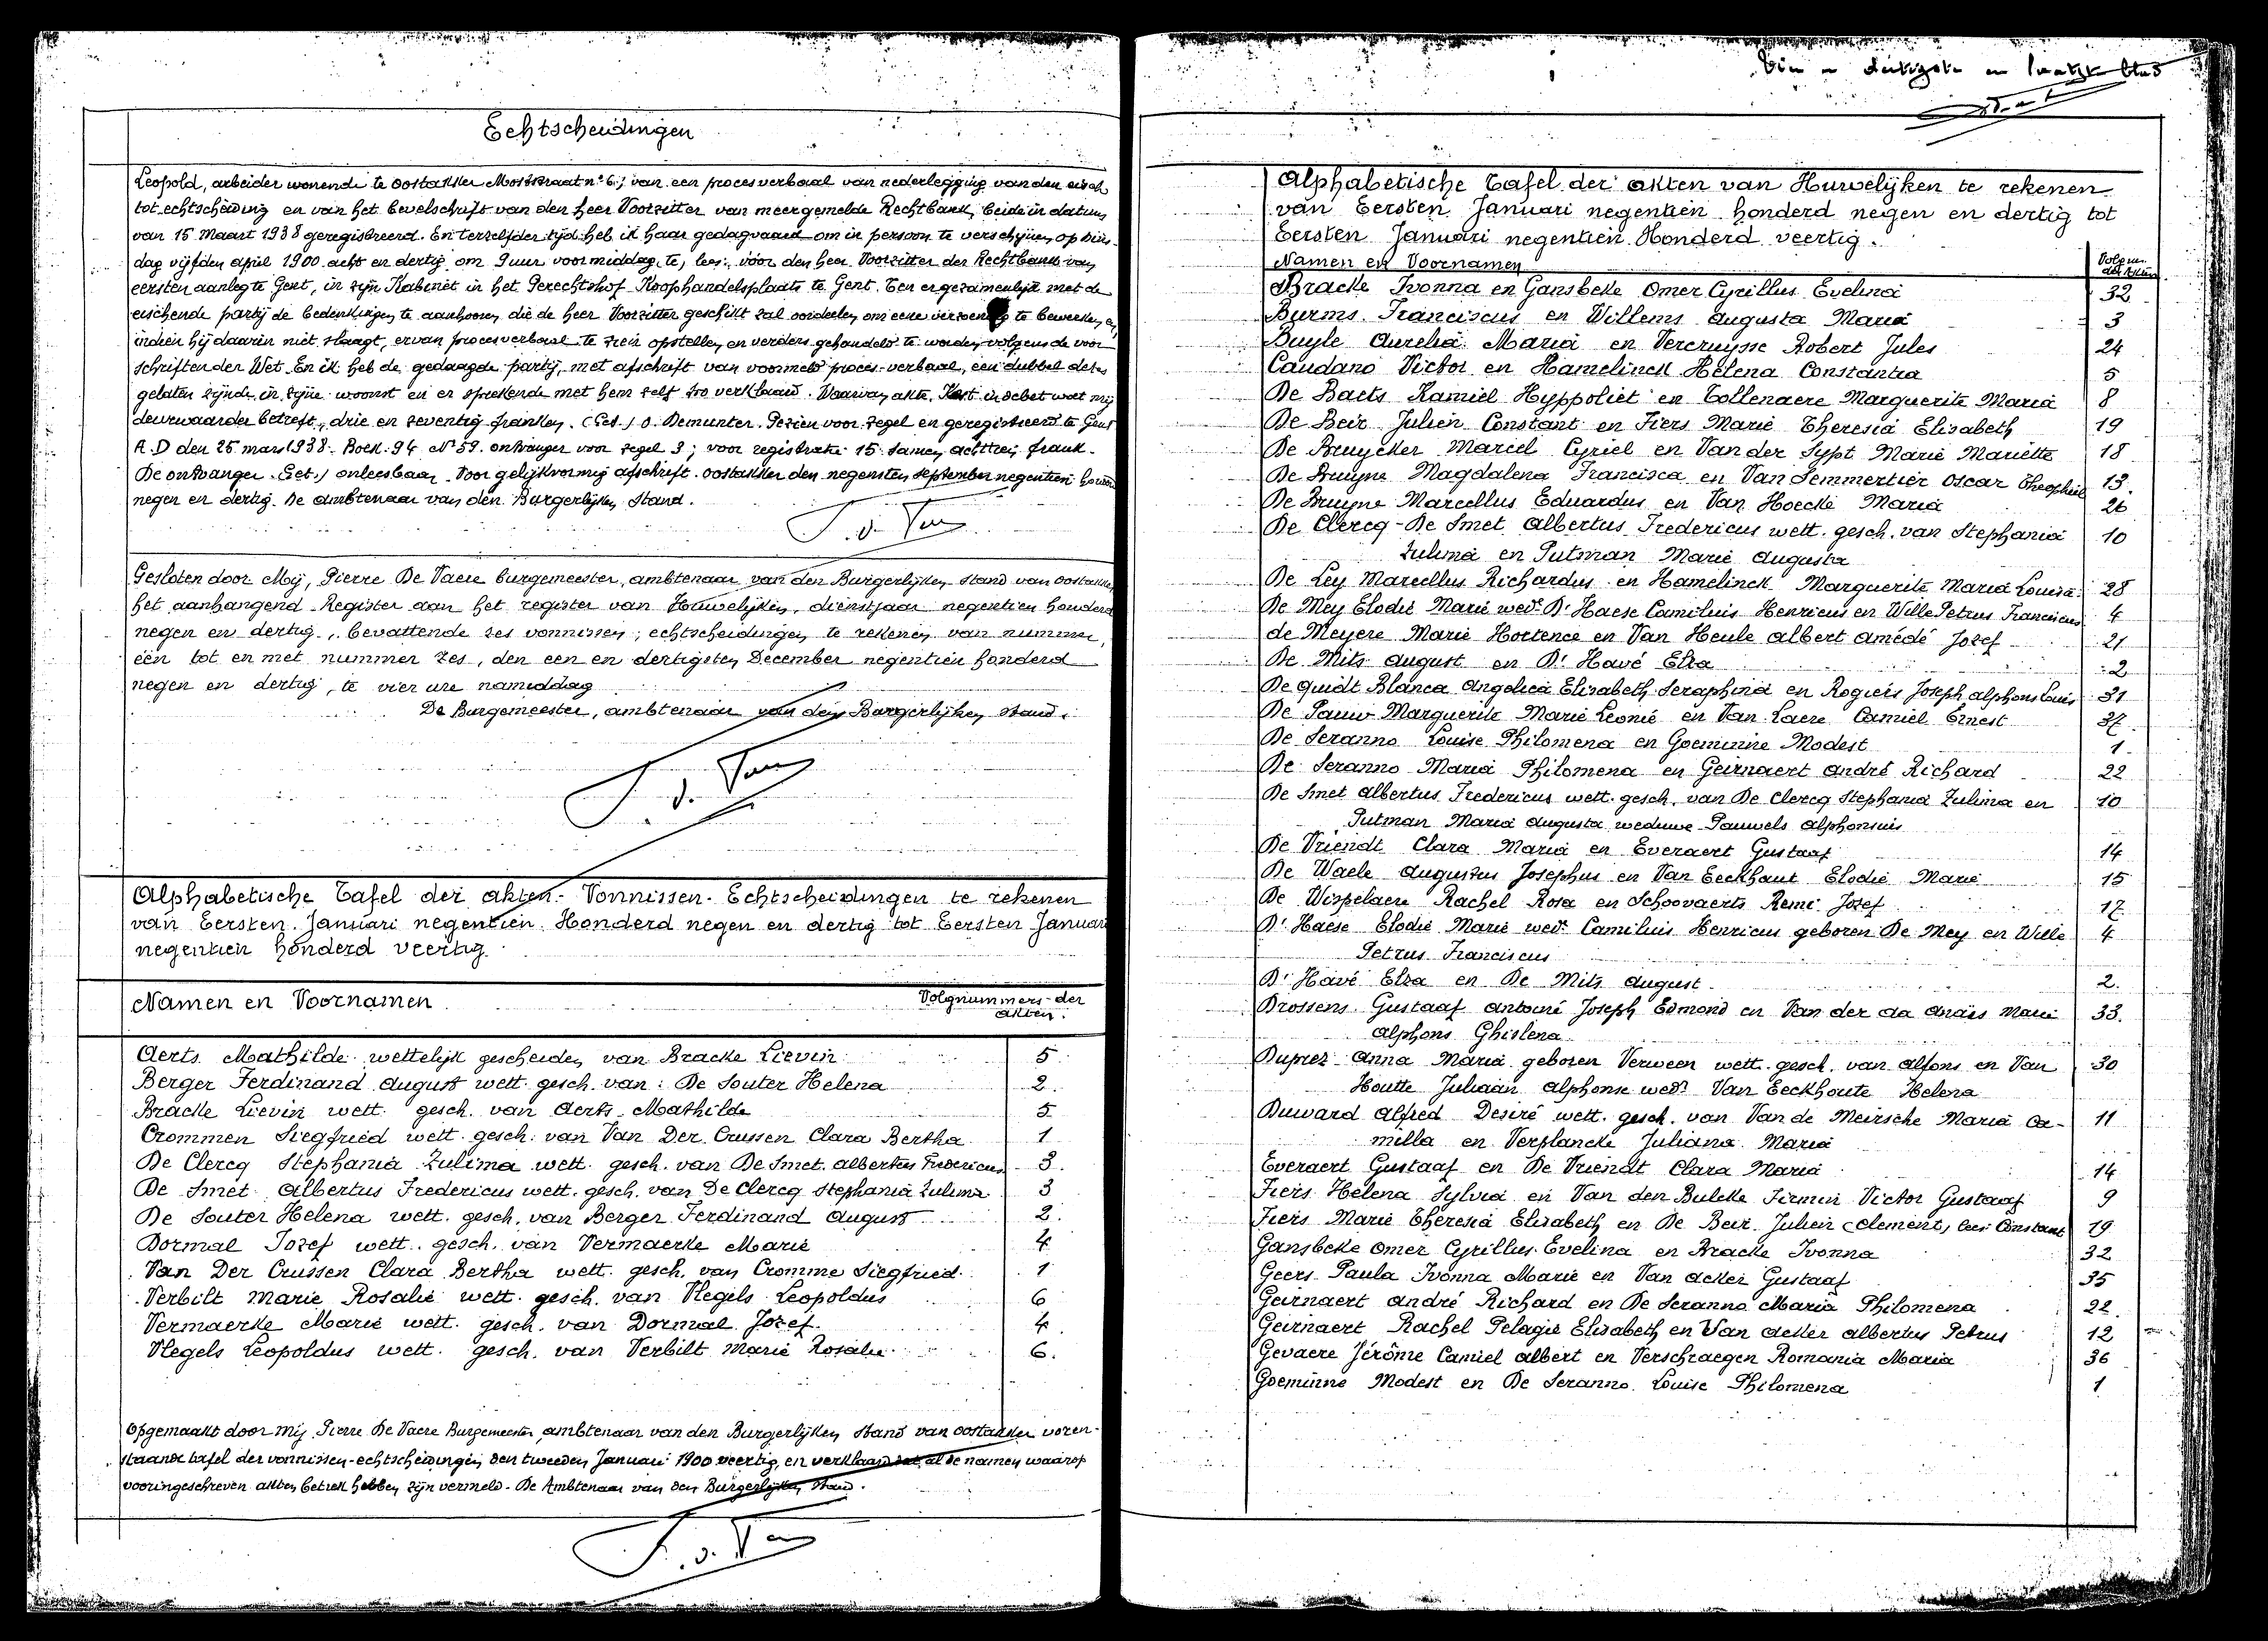 Echtscheidingen
Leopold, arbeider wonende te Oostakker Moststraat n° 6; van een proces verbaal van nederlegging van den eisch
tot echtscheiding en van het bevelschrift van den heer Voorzitter van meergemelde Rechtbank, beide in datum
van 15 Maart 1938 geregistreerd. En terzelfder tijd heb ik haar gedagvaard om in persoon te verschijnen op dins-
dag vijfden april 1900 acht en dertig om 9 uur voormiddag te, lees: vóór den heer Voorzitter der Rechtbank van
eersten aanleg te Gent, in zijn Kabinet in het Gerechtshof Koophandelsplaats te Gent. Ten er gezamenlijk met de
eischende partij de bedenkingen te aanhooren die de heer Voorzitter geschikt zal oordeelen om eene verzoening te bewerken, en,
indien hij daarin niet slaagt, ervan proces verbaal te zien opstellen en verders gehandeld te worden volgens de voor
schriften der Wet. En ik heb de gedaagde partij, met afschrift van voormeld proces-verbaal, een dubbel dezes
gelaten zijnde in zijne woonst en er sprekende met hem zelf zoo verklaard. Waarvan akte, Kost in debet wat mij
deurwaarder betreft, drie en zeventig franken. (Get.) O. Demunter. Gezien voor zegel en geregistreerd te Gent
A.D den 25 mars 1938. Boek 94 N° 59. ontvanger voor zegel 3; voor registratie 15 samen achttien frank.
De ontvanger. Get.) onleesbaar. Voor gelijkvormig afschrift. Oostakker den negensten september negentien honderd
negen en dertig. De ambtenaar van den Burgerlijken Stand.
Gesloten door Mij, Pierre De Vaere burgemeester, ambtenaar van den Burgerlijken Stand van Oostakker,
het aanhangend Register aan het register van Houwelijken, dienstjaar negentien honderd
negen en dertig, bevattende zes vonnissen; echtscheidingen te rekenen van nummer
één tot en met nummer zes, den een en dertigsten December negentien honderd
negen en dertig, te vier ure namiddag
De Burgemeester, ambtenaar van den Burgerlijken Stand.
Alphabetische Tafel der akten-Vonnissen-Echtscheidingen te rekenen
van Eersten Januari negentien Honderd negen en dertig tot Eersten Januari
negentien honderd veertig.
Namen en Voornamen Volgnummers der akten.
Aerts Mathilde wettelijk gescheiden van Bracke Lievin 5
Berger Ferdinand August wett. gesch. van: De Souter Helena 2.
Bracke Lievin wett. gesch. van Aerts Mathilde 5
Crommen Siegfried wett. gesch. van Van Der Crussen Clara Bertha 1
De Clercq Stephania Zulima wett. gesch. van De Smet Albertus Fredericus 3.
De Smet Albertus Fredericus wett. gesch. van De Clercq Stephania Zulima 3
De Souter Helena wett. gesch. van Berger Ferdinand August 2.
Dormal Jozef wett. gesch. van Vermaerke Marie 4
Van Der Crussen Clara Bertha wett. gesch. van Cromme Siegfried 1
Verbilt Marie Rosalie wett. gesch. van Vlegels Leopoldus 6
Vermaerke Marie wett. gesch. van Dormal Jozef 4.
Vlegels Leopoldus wett. gesch. van Verbilt Marie Rosalie 6.
Opgemaakt door Mij Pierre De Vaere Burgemeester, ambtenaar van den Burgerlijken Stand van Oostakker voren-
staande tafel der vonnissen-echtscheidingen den tweeden Januari 1900 veertig, en verklaard dat al de namen waarop
vooringeschreven akten betrek hebben zijn vermeld. De Ambtenaar van den Burgerlijken Stand.
Een en dertigste en laatste blad
Alphabetische Tafel der akten van Huwelijken te rekenen
van Eersten Januari negentien honderd negen en dertig tot
Eersten Januari negentien Honderd veertig.
Namen en Voornamen Volgnu. der Akten
Bracke Ivonna en Gansbeke Omer Cyrillus Evelina 32
Burms Franciscus en Willems Augusta Maria 3
Buyle Aurelia Maria en Vercruysse Robert Jules 24
Caudano Victor en Hamelinck Helena Constantia 5
De Baets Kamiel Hyppoliet en Tollenaere Marguerite Maria 8
De Beir Julien Constant en Fiers Marie Theresia Elisabeth 19
De Bruycker Marcel Cyriel en Van der Sypt Marie Mariette 18
De Bruyne Magdalena Francisca en Van Semmertier Oscar Theophiel 13.
De Bruyne Marcellus Eduardus en Van Hoecke Maria 26
De Clercq-De Smet Albertus Fredericus wett. gesch. van Stephania 10
Zulima en Putman Marie Augusta
De Ley Marcellus Richardus en Hamelinck Marguerite Maria Louisa 28
De Mey Elodie Marie wed. D'Haese Camiluis Henricus en Wille Petrus Franciscus 4
de Meyere Marie Hortence en Van Heule Albert Amédé Jozef 21
De Mits August en D'Havé Elza 2
De Quidt Blanca Angelica Elisabeth Seraphina en Rogiers Joseph Alphons Louis 31
De Pauw Marguerite Marie Leonie en Van Laere Camiel Ernest 37
De Seranno Louise Philomena en Goeminne Modest 1
De Seranno Maria Philomena en Geirnaert André Richard 22
De Smet Albertus Fredericus wett. gesch. van De Clercq Stephania Zulima en 10
Putman Maria Augusta weduwe Pauwels Alphonsius
De Vriendt Clara Maria en Everaert Gustaaf 14
De Waele Augustus Josephus en Van Eeckhaut Elodie Marie 15
De Wispelaere Rachel Rosa en Schoovaerts Remi Jozef 17
D'Haese Elodie Marie wed. Camiluis Henricus geboren De Mey en Wille 4
Petrus Franciscus
D'Havé Elza en De Mits August 2.
Drossens Gustaaf Antoine Joseph Edmond en Van der Aa Anaïs Marie 33.
Alphons Ghislena
Duprez Anna Maria geboren Verween wett. gesch. van Alfons en Van 30
Houtte Juliaan Alphonse wed. Van Eeckhoute Helena
Duward Alfred Desiré wett. gesch. van Van de Meirsche Maria Ca- 11
milla en Verplancke Juliana Maria
Everaert Gustaaf en De Vriendt Clara Maria 14
Fiers Helena Sylvia en Van den Bulcke Firmin Victor Gustaaf 9
Fiers Marie Theresia Elisabeth en De Beir Julien Clement, lees Constant 19
Gansbeke Omer Cyrillus Evelina en Bracke Ivonna 32
Geers Paula Ivonna Marie en Van Acker Gustaaf 35
Geirnaert André Richard en De Seranno Maria Philomena 22.
Geirnaert Rachel Pelagie Elisabeth en Van Acker Albertus Petrus 12
Gevaere Jérôme Camiel Albert en Verschraegen Romania Maria 36
Goeminne Modest en De Seranno Louise Philomena 1